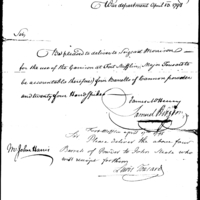 War department April 10, 1798
Sir,
Be pleased to deliver to Serjeant Morrison
for the use of the Garrison at Fort Mifflin, Major Toussard to
be accountable therefor, four Barrels of Cannon powder
and twenty four Handspikes
James McHenry
Samuel Hodgdon
Mr John Harris
Please deliver the above four
Barrels of Powder to John
who will receipt for them